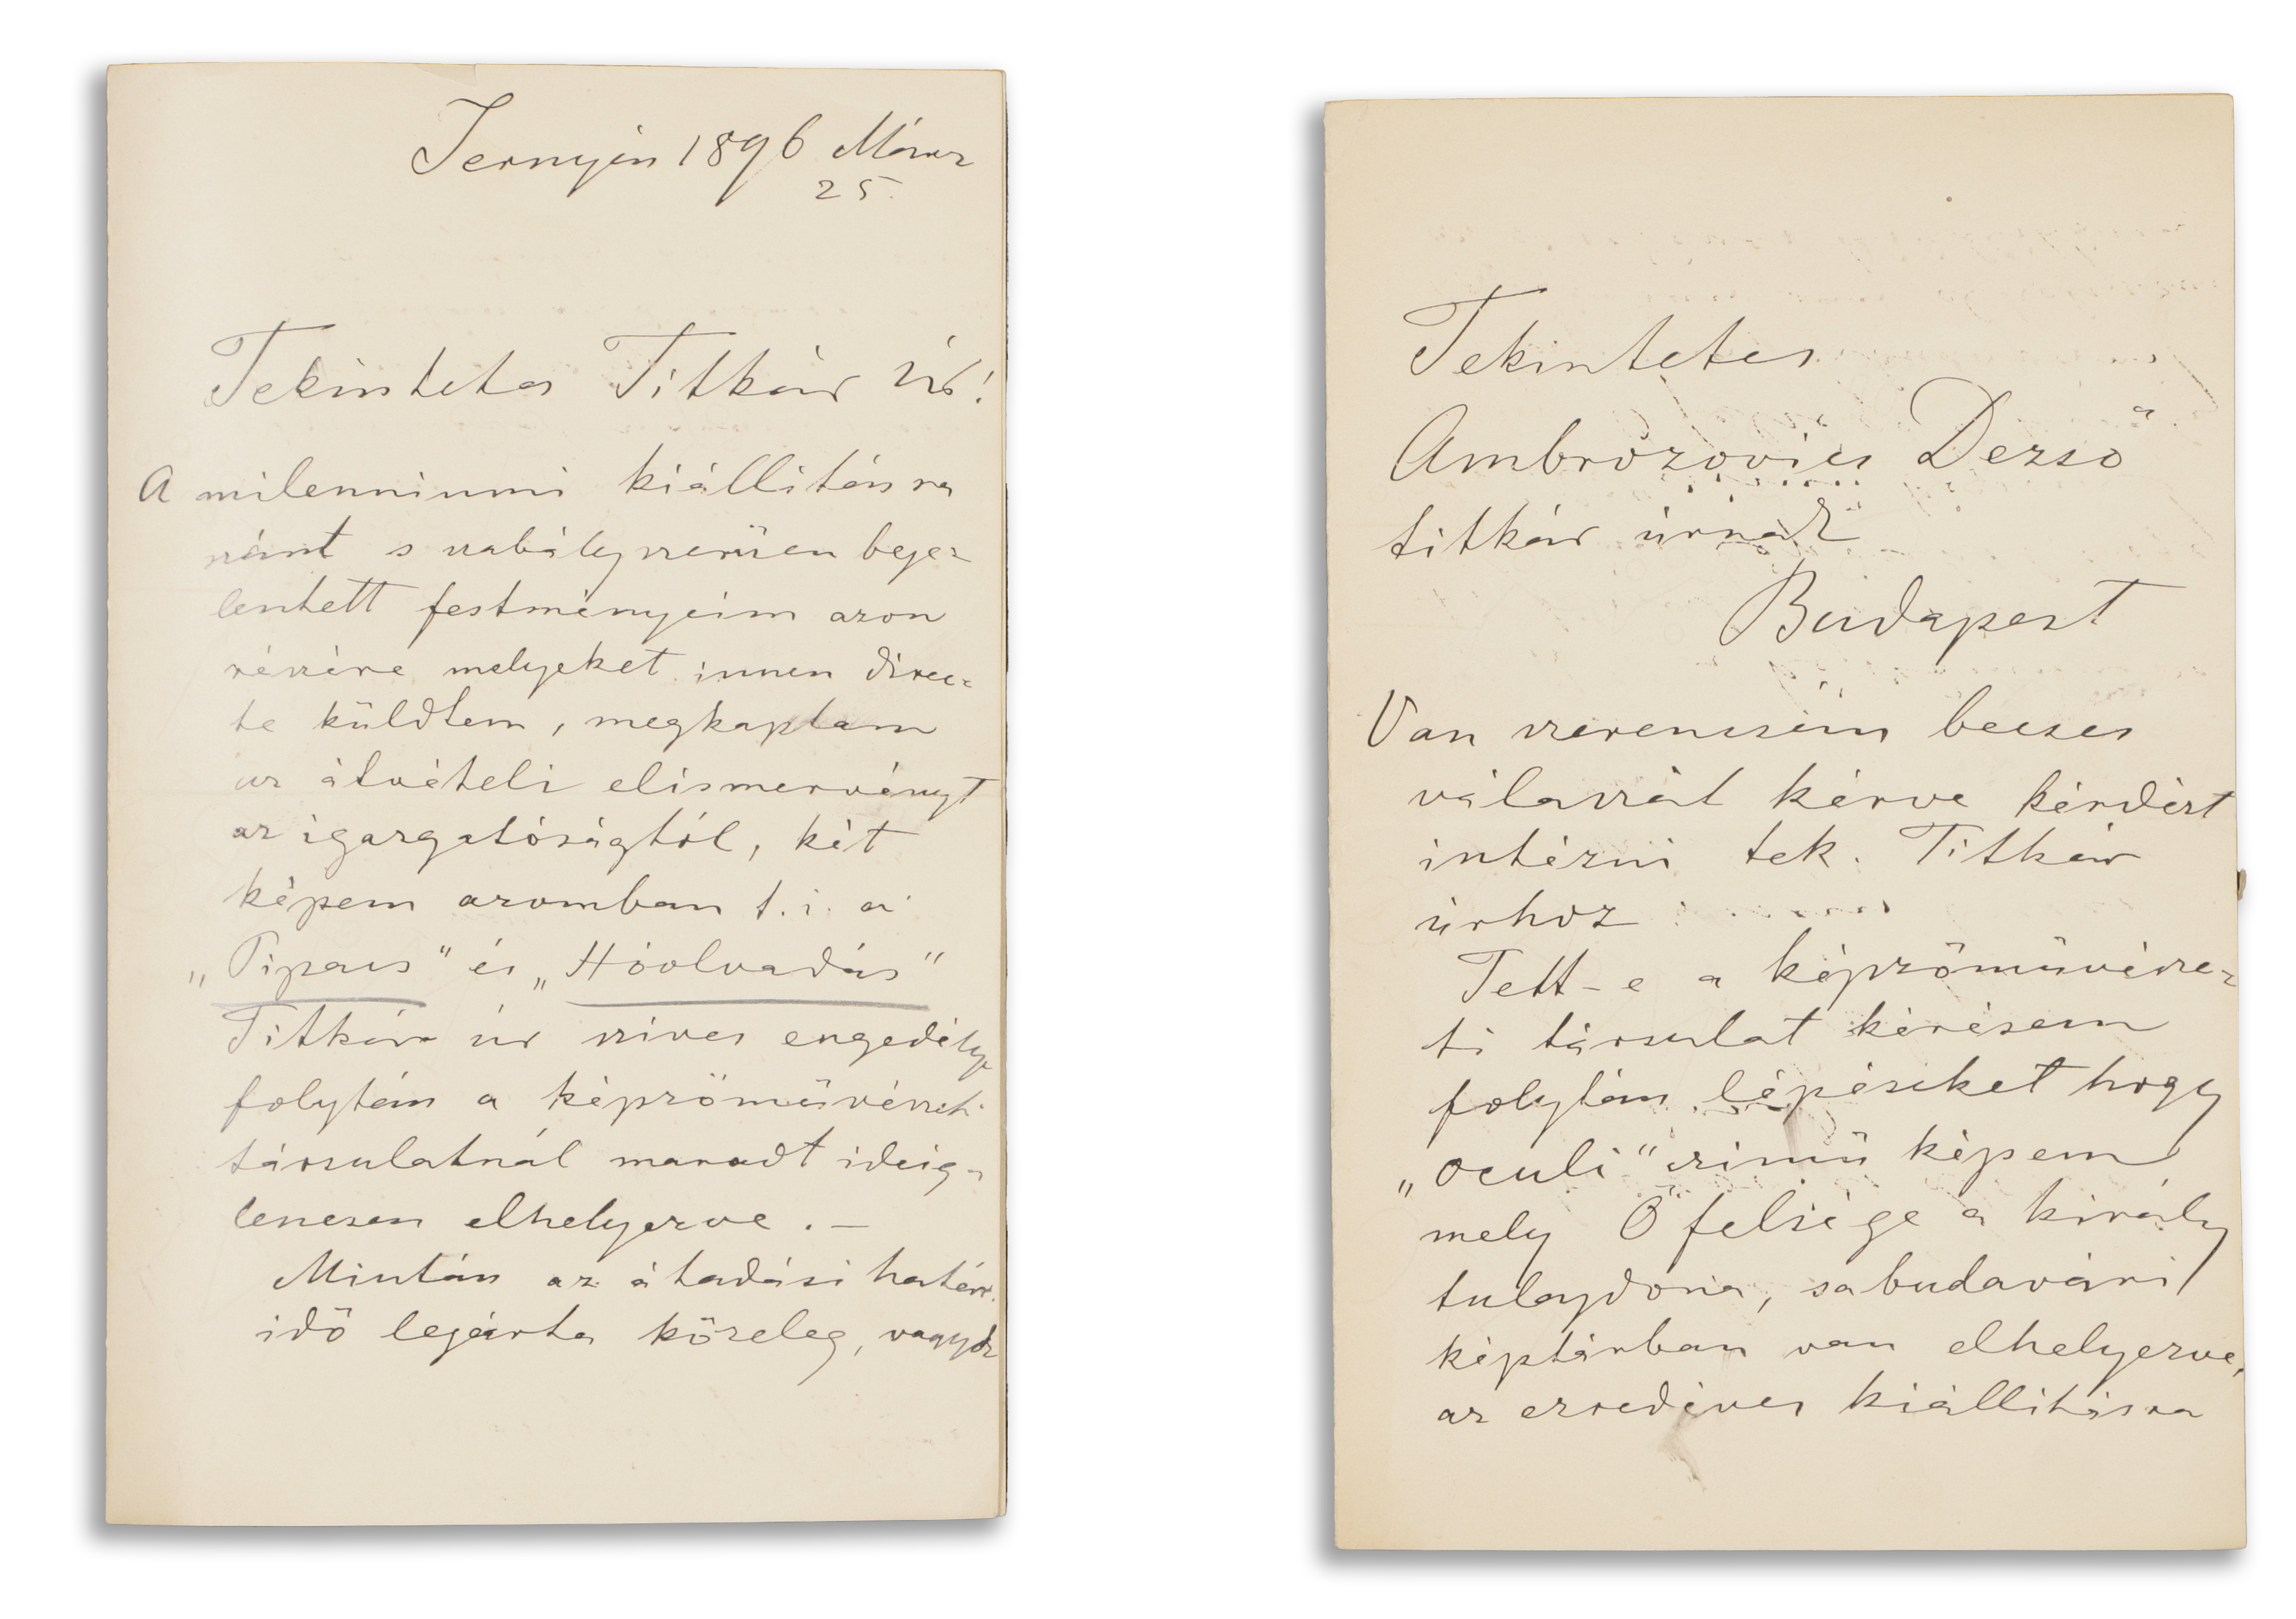 Jernyén 1896 Márcz
25.
Tekintetes Titkár Úr!
A milenniumi kiállitásra
szánt s szabályszerüen beje=
lentett festményeim azon
részére melyeket innen direc=
te küldtem, megkaptam
az átvételi elismervényt
az igazgatóságtól, két
képem azomban t. i. a
„Pipacs" és „Hóolvadás"
Titkár úr szives engedélye
folytán a képzömüvészeti
társulatnál maradt ideig=
lenesen elhelyezve . —
Miután az átadási határ
idö lejárta közeleg, vagyok
Tekintetes
Ambrózovics Dezső
titkár úrnak
Budapest
Van szerencsém becses
válaszát kérve kérdést
intézni tek. Titkár
úrhoz
Tett-e a képzömüvésze=
ti társulat kérésem
folytán lépéseket hogy
„Oculi" czimü képem
mely Ő felsége a király
tulajdona, s a budavári
képtárban van elhelyezve,
az ezredéves kiállitásra